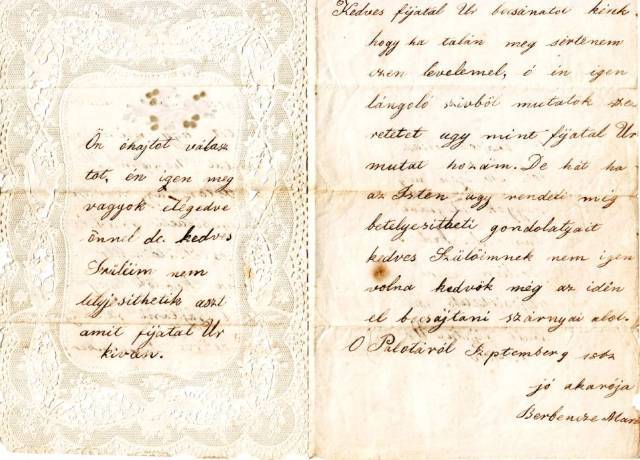 Ön óhajtot válasz
tot, én igen meg
vagyok elégedve
önnél de kedves
Szüleim nem
telyjesithetik aszt
amit fijatal Ur
kiván.
Kedves fijatal Ur bocsánatot kérek
hogy ha talán még sérteném
ezen levelemel, ó én igen
lángoló szivböl mutatok sze
retetet ugy mint fijatal Ur
mutat hozám. De hát ha
az Isten ugy rendeli mig
betelyesitheti gondolatyait
kedves Szülöimnek nem igen
volna kedvök még az idén
el bocsajtani szárnyai alol.
O Palotáról Szeptember 9
jó akarója
Berbencze Mari